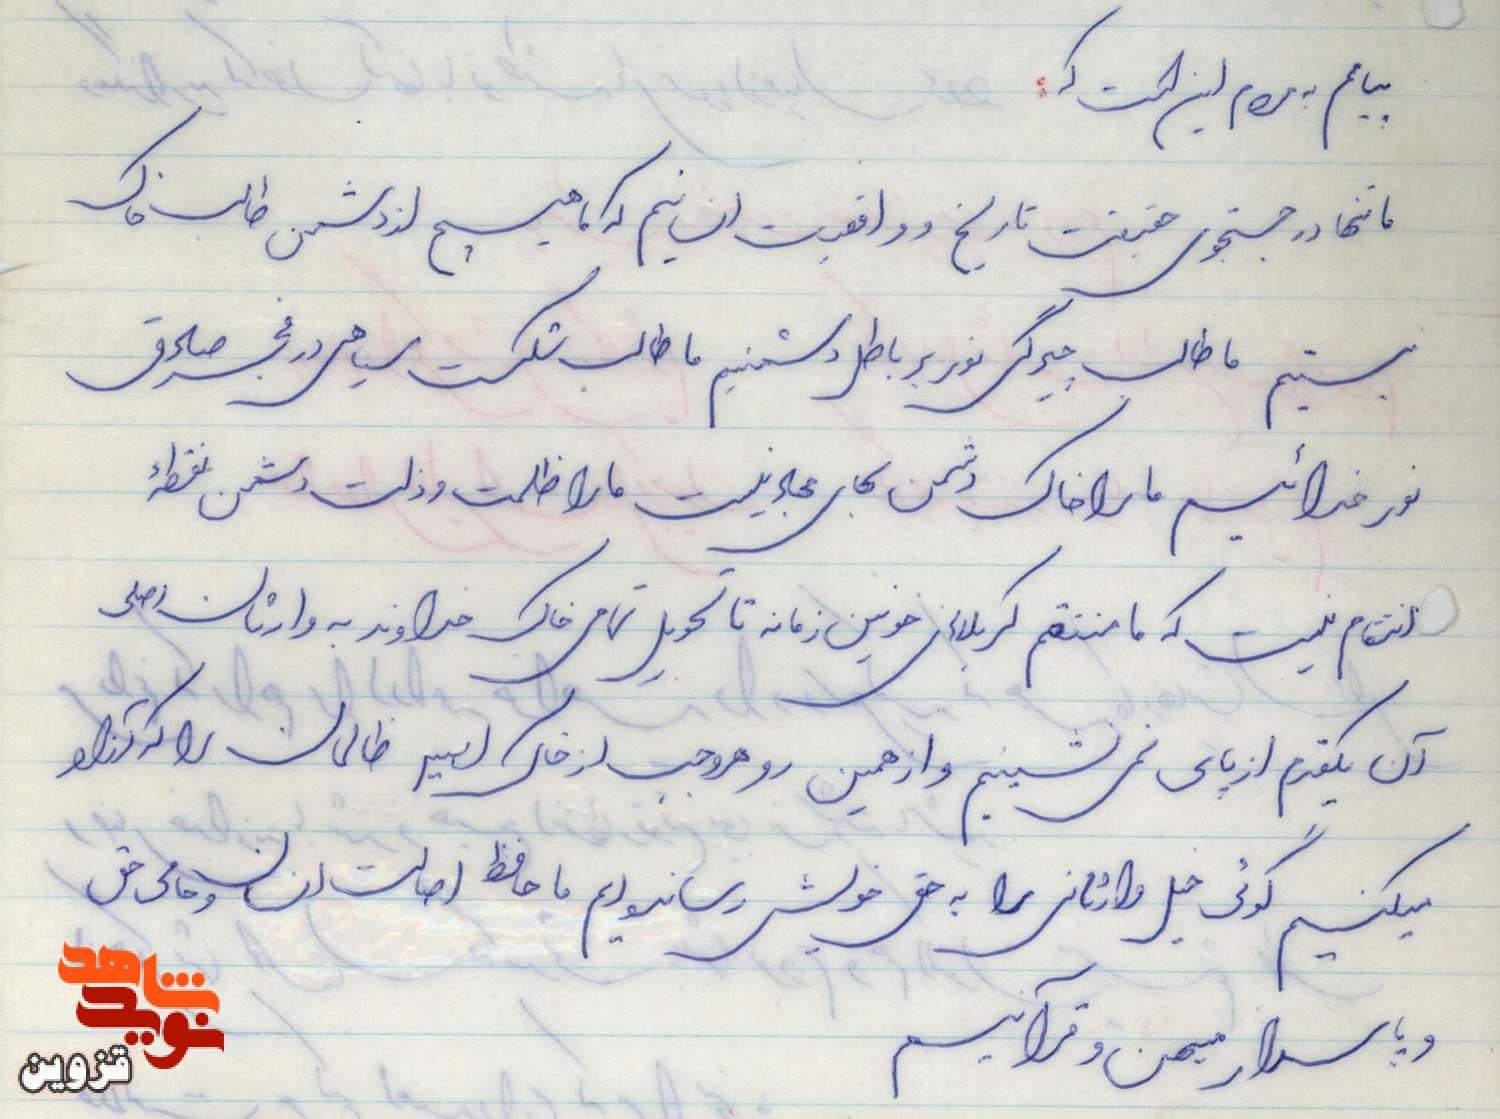 پیامم به مردم این است که:
ما تنها در جستجوی حقیقت تاریخ و واقعیت انسانیم که ما هیچ از دشمن طالب خاک
نیستیم ما طالب چیرگی نور بر باطل دشمنیم ما طالب شکست سیاهی در فجر صادق
نور خدائیم ما را خاک دشمن بجای مجاز نیست ما را ظلمت و ذلت دشمن نقطهٔ
انتقام نیست که ما منتقم کربلای خونین زمانه تا تحویل تمامی خاک خداوند به وارثان اصلی
آن یکقدم از پای نمی نشینیم و از همین رو هر وجب از خاک اسیر ظالمان را که آزاد
میکنیم گوئی خیل وارثانی را به حق خویش رسانده ایم ما حافظ اصالت انسان و حامی حق
و پاسدار میهن و قرآنیم
شاهد
نوید
قزوین